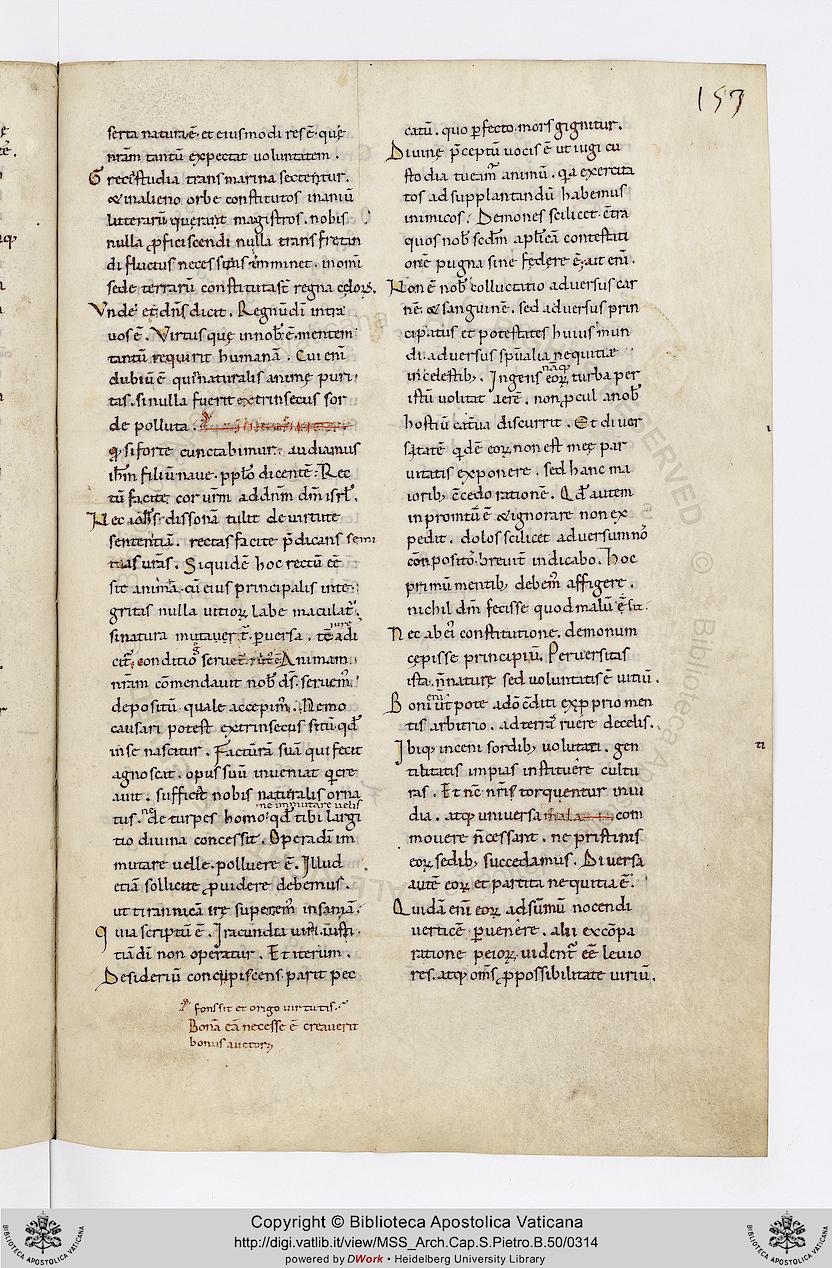 153
serta naturȩ ē. et eiusmodi res ē. quȩ
nr̄am tantū expectat uoluntatem.
Greci studia transmarina sectentur.
& in alieno orbe constitutos inaniū
litterarū querant magistros. nobis
nulla ꝓficiscendi nulla transfretan
di fluctus necessitas imminet. in omi
sede terrarū constitutas ē regna cȩloꝝ.
Vnde et dn̄s dicit. Regnū dī intra
uos ē. Virtus quȩ in nob̄ ē. mentem
tantū requirit humanā. Cui enī
dubiū ē qui naturalis animȩ puri
tas. si nulla fuerit extrinsecus sor
de polluta.
ꝙ si forte cunctabimur. audiamus
ih̄m filiū naue. pp̄lo dicentē. Rec
tū facite cor ur̄m ad dn̄m dm̄ isrl̄.
Nec ioh̄s dissonā tulit de uirtute
sententiā. rectas facite p̄dicans semi
tas ur̄as. Siquidē hoc rectū eē
sit animā. cū eius principalis inte
gritas nulla uitioꝝ labe maculat̄.
si natura mutauer̄t. ꝑuersa.
Animam
nr̄am cōmendauit nob̄ ds̄. seruem̄
depositū quale accepim̄. Nemo
causari potest extrinsecus sitū qd̄
in se nascitur. Facturā suā qui fecit
agnoscat. opus suū inueniat qc̄re
auit. sufficit nobis naturalis orna
ne inmutare uelis
tus. ne deturpes homo. qd̄ tibi largi
tio diuina concessit. Operā dī im
mutare uelle. polluere ē. Illud
etiā sollicite ꝓuidere debemus.
ut tirannicā irȩ superem̄ insaniā.
Quia scriptū ē. Iracundia uiri. iusti
tiā dī non operatur. Et iterum.
Desideriū concupiscens. parit pec
ʼ fons sit et origo uirtutis.
Bonā eā necesse ē creauerit
bonus auctor
catū. quo ꝑfecto. mors gignitur.
Diuinȩ p̄ceptū uocis ē ut iugi cu
stodia tueam̄ animū. qa exercita
tos ad supplantandū habemus
inimicos. Demones scilicet. c̄tra
quos nob̄ sc̄dm apl̄icā contestati
onē pugna sine fȩdere ē. ait enī.
Non ē nob̄ colluctatio aduersus car
nē. & sanguinē. sed aduersus prin
cipatus et potestates huius mun
di. aduersus spūalia nequitiȩ
in celestib;. Ingens naꝗ; eoꝝ turba per
istū uolitat aerē. non ꝓcul a nob̄
hostiū cat̄ua discurrit. Et diuer
sitatē qdē eoꝝ non est meȩ par
uitatis exponere. sed hanc ma
iorib; c̄cedo rationē. Qd̄ autem
in promtū ē & ignorare non ex
pedit. dolos scilicet aduersum nō
cōnpositos. breuit̄ indicabo. Hoc
primū mentib; debem̄ affigere.
nichil dm̄ fecisse quod malū sit.
Nec ab ei constitutione. demonum
cȩpisse principiū. Peruersitas
ista. n̄ naturȩ sed uoluntatis ē uitiū.
Boni enī utpote a dō c̄diti ex ꝓprio men
tis arbitrio. ad terrā ruere de celis.
Ibiꝗ; in ceni sordib; uolutati. gen
tilitatis impias instituere cultu
ras. Et nc̄ nr̄is torquentur inui
dia. atꝗ; uniuersa com
mouere n̄ cessant. ne pristinis
eoꝝ sedib; succedamus. Diuersa
autē eoꝝ et partita nequitia ē.
Quidā enī eoꝝ ad sūmū nocendi
uerticē ꝑuenere. alii ex cōpa
ratione peioꝝ. uident̄ eē leuio
res. atꝗ; om̄s ꝓ possibilitate uiriū.
Copyright © Biblioteca Apostolica Vaticana
http://digi.vatlib.it/view/MSS_Arch.Cap.S.Pietro.B.50/0314
powered by DWork • Heidelberg University Library